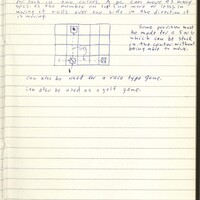 for each in two colors. A pc can move as many
spcs as the number on top & not more or less. in
moving it rolls over one side in the direction it
is moving.
Some provision must
be made for a 5 or 6
which can be stuck
in the center without
being able to move.
can also be used for a race type game.
can also be used as a golf game.